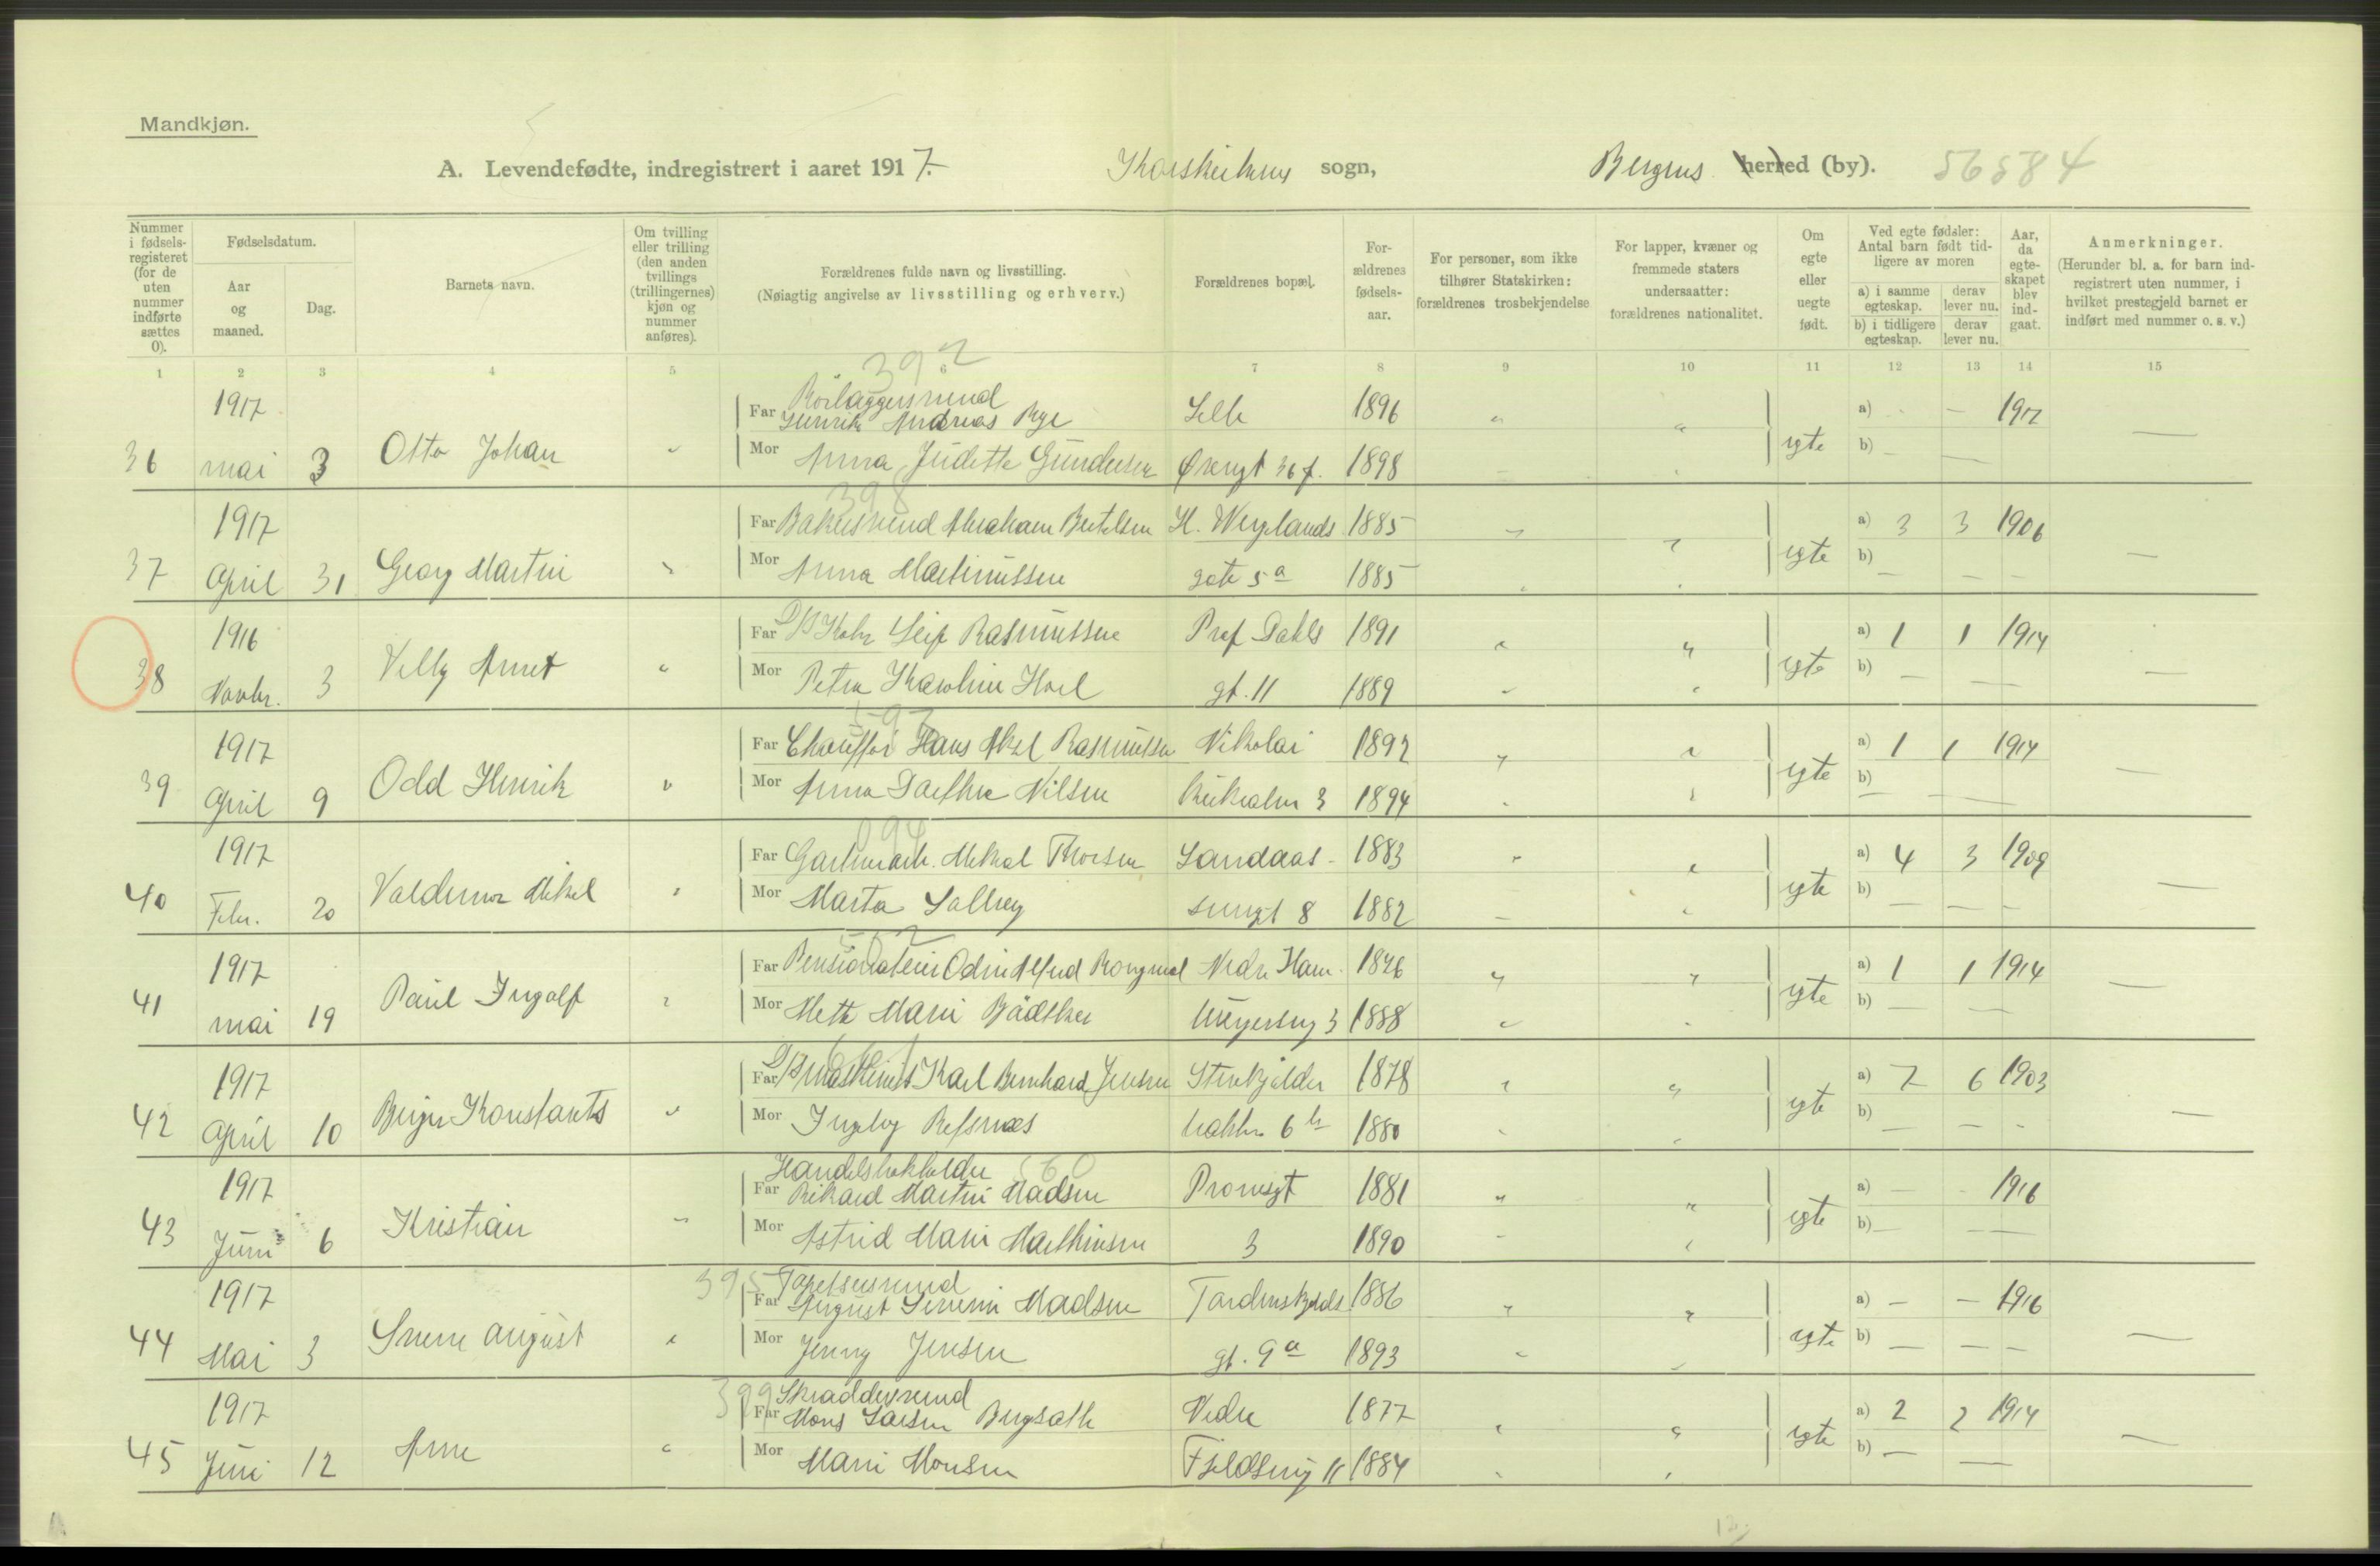 Mandkjøn.
A. Levendefødte, indregistrert i aaret 1917. Korskirkens sogn, Bergens herred (by). 56584
Nummer i fødsels-registeret (for de uten nummer indførte sættes 0).
Fødselsdatum.
Aar og maaned.
Dag.
Barnets navn.
Om tvilling eller trilling (den anden tvillings (trillingernes) kjøn og nummer anføres).
Forældrenes fulde navn og livsstilling.
(Nøiagtig angivelse av livsstilling og erhverv.)
Forældrenes bopæl.
For-ældrenes fødsels-aar.
For personer, som ikke tilhører Statskirken: forældrenes trosbekjendelse
For lapper, kvæner og fremmede staters undersaatter: forældrenes nationalitet.
Om egte eller uegte født.
Ved egte fødsler: Antal barn født tid-ligere av moren
a) i samme egteskap. derav lever nu.
b) i tidligere egteskap. derav lever nu.
Aar, da egte-skapet blev ind-gaat.
Anmerkninger.
(Herunder bl. a. for barn ind-registrert uten nummer, i hvilket prestegjeld barnet er indført med nummer o. s. v.)
1 2 3 4 5 6 7 8 9 10 11 12 13 14 15
392
1917 Far Rörläggersvend
Henrik Andreas Rye 1896 a) - 1917
36 mai 3 Otto Johan Mor Anna Judette Gundersen 36 f. 1898 egte b) -
398
1917 Far Bakersvend Abraham Bertelsen H. Wergelands 1885 a) 3 3 1906
37 April 31 Georg Martin Mor Anna Martinussen gate 5a 1885 egte b) - - -
1916 Far Leif Rasmussen Prof Dahls 1891 a) 1 1 1914
38 Novbr. 3 Villy Mor Petra Karoline gt. 11 1889 egte b) - -
1917 Far Chauffør Hans Aksel Rasmussen Nikolai 1892 a) 1 1 1914
39 April 9 Odd Henrik Mor Anna Nilsen kirkealm 3 1894 egte b) - -
1917 Far Mikal Thorsen Landaas- 1883 a) 4 3 1909
40 Febr. 20 Valdemar Mikal Mor Marta Solberg 8 1882 egte b) - - -
1917 Far Odin Alfred Nedre Ham- 1886 a) 1 1 1914
41 mai 19 Paul Ingolf Mor Mette Marie Bådsker 3 1888 egte b) - -
1917 Far D/S maskinist Karl Bernhard Jensen Stenkjelder 1878 a) 7 6 1903
42 April 10 Birger Konstants Mor Ingeborg Refsnæs bakken 6 b 1880 egte b) - - -
Handelsbokholder 560
1917 Far Rikard Martin Madsen Promsgt 1881 a) - 1916
43 Juni 6 Kristian Mor Astrid Marie Mathiesen 3 1890 egte b) - -
395 Tapetsersvend
1917 Far August Severin Madsen Tordenskjolds 1886 a) - - 1916
44 Mai 3 Sverre August Mor Jenny Jensen gt. 9a 1893 egte b) - - -
399 Skræddersvend
1917 Far Mons Larsen Nedre 1877 a) 2 2 1914
45 Juni 12 Arne Mor Marie Monsen Fjeldsmug 11 1884 egte b) - -